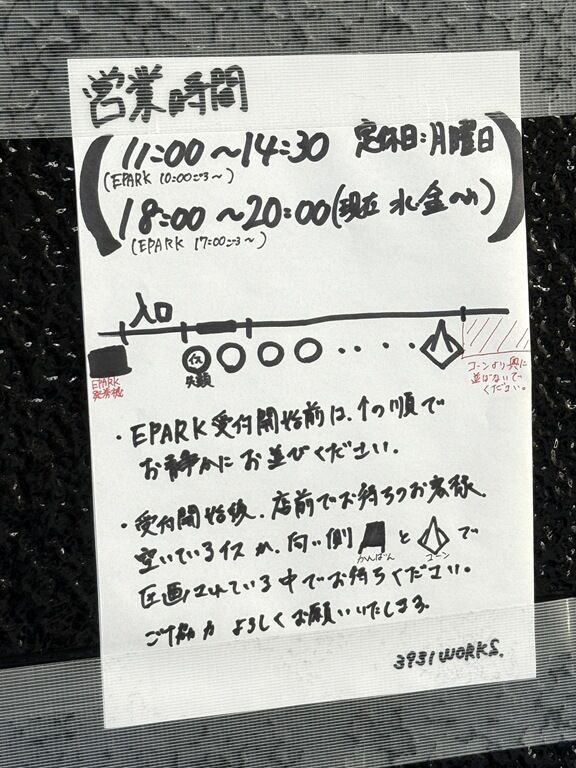 営業時間
11:00～14:30 定休日:月曜日
(EPARK 10:00ごろ～)
18:00～20:00(現在 水・金のみ)
(EPARK 17:00ごろ～)
入口
イス
先頭
EPARK
発券機
コーンより奥に
並ばないで
ください。
・EPARK受付開始前は、↑の順で
お静かにお並びください。
・受付開始後、店前でお待ちのお客様、
空いているイスか、向い側 と で
かんばん コーン
区画されている中でお待ちください。
ご協力よろしくお願いいたします。
3931WORKS.